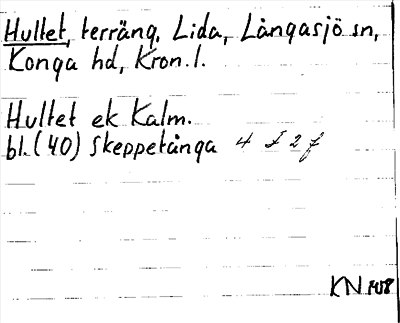 Hultet, terräng, Lida, Långasjö sn,
Konga hd, Kron. l.
Hultet ek Kalm.
bl. (40) Skeppetånga 4 I 2 f
KN